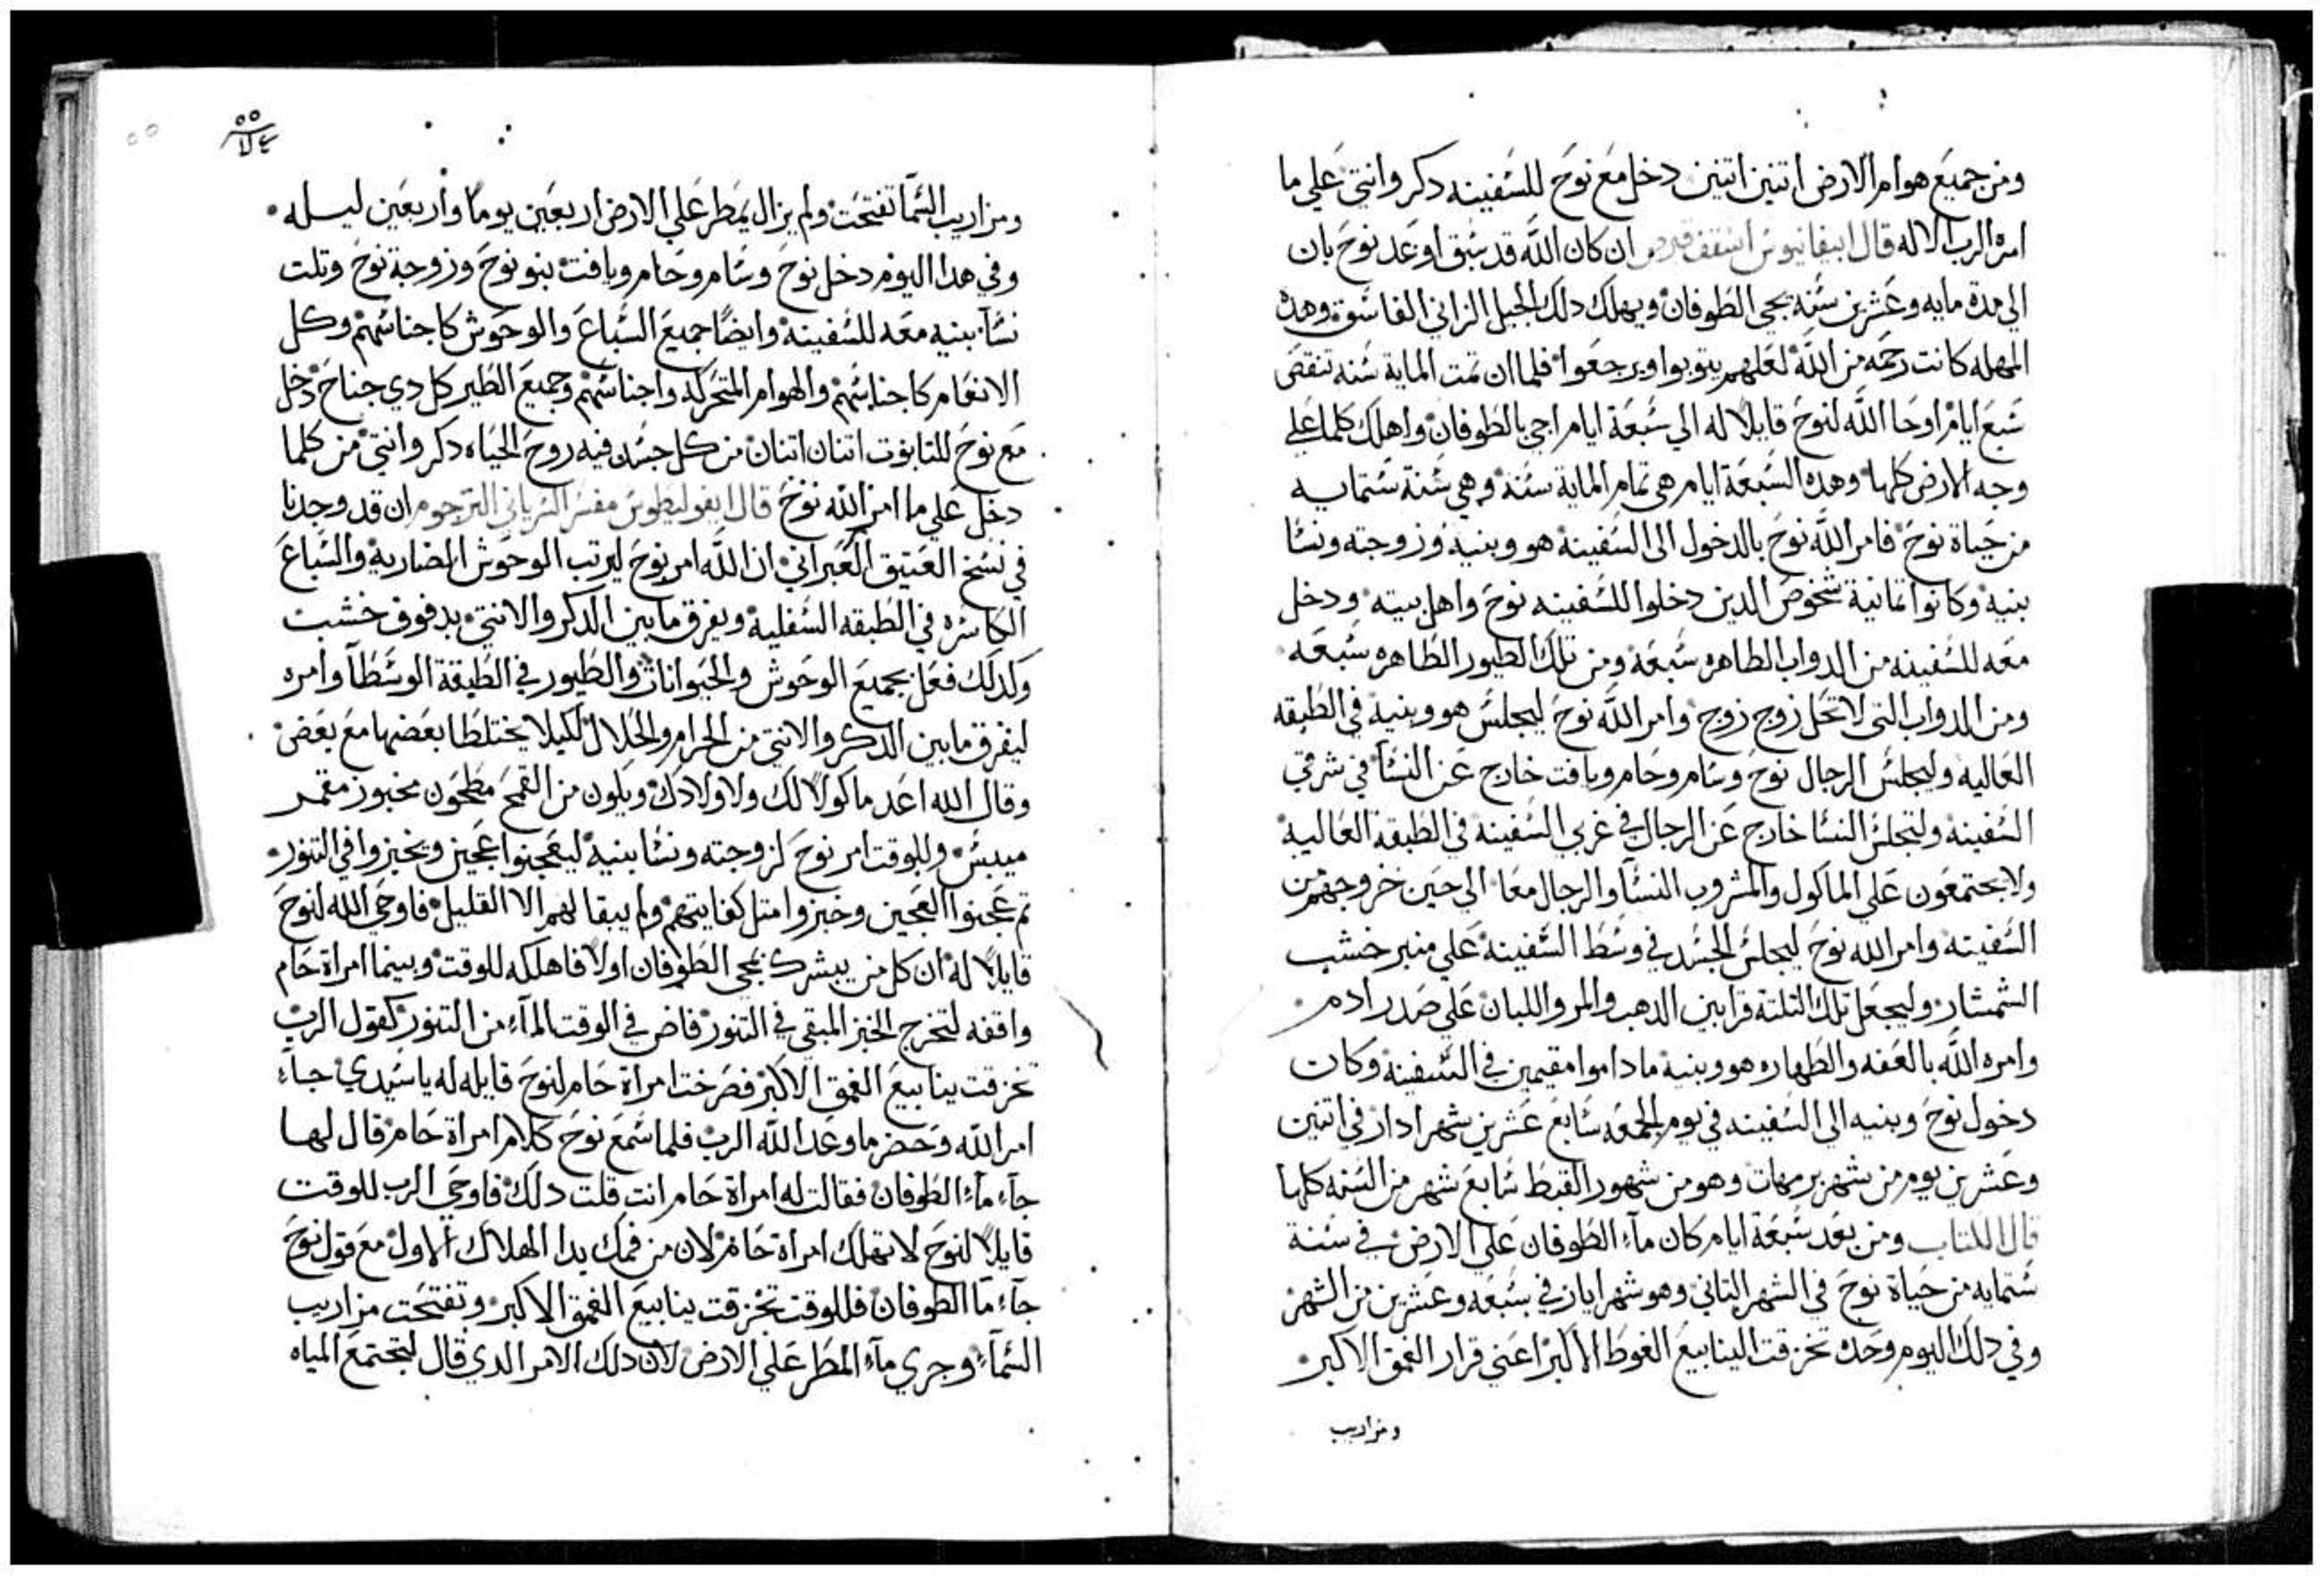 ومن جميع هوام الارض اتنين اتنين دخل مع نوح للسفينه دكر وانتي علي ما
امره الرب الاله قال ابيفانيوس اسقف قبرص ان كان الله قد سبق اوعد نوح بان
الي مدة مايه وعشرين سنه يجي الطوفان ويهلك دلك الجيل الزاني الفاسق وهده
المهله كانت رحمه من الله لعلهم يتوبوا ويرجعوا فلما ان تمت الماية سنه تنقص
سبع ايام اوحا الله لنوح قايلا له الي سبعة ايام اجي بالطوفان واهلك كلما علي
وجه الارض كلها وهده السبعة ايام هي تمام الماية سنة وهي سنة ستمايه
من حياة نوح فامر الله نوح بالدخول الى السفينة هو وبنيه وزوجته ونسا
بنيه وكانوا تمانية شخوص الدين دخلوا للسفينه نوح واهل بيته ودخل
معه للسفينه من الدواب الطاهره سبعة ومن تلك الطيور الطاهره سبعه
ومن الدواب التي لا تحل زوج زوج وامر الله نوح ليجلس هو وبنيه في الطبقه
العاليه وليجلس الرجال نوح وسام وحام ويافت خارج عن النسآ في شرقي
السفينه ولتجلس النسا خارج عن الرجال في غربي السفينه في الطبقة العالية
ولا يجتمعون علي الماكول والمشروب النسآ والرجال معا الي حين خروجهم من
السفينه وامر الله نوح ليجلس الجسد في وسط السفينة علي منبر خشب
الشمشار وليجعل تلك التلتة قرابين الدهب والمر واللبان علي صدر ادم
وامره الله بالعفه والطهاره هو وبنيه ما داموا مقيمين في السفينة وكان
دخول نوح وبنيه الى السفينه في يوم الجمعه سابع عشرين شهر ادار في اتنين
وعشرين يوم من شهر برمهات وهو من شهور القبط سابع شهر من السنه كلها
قال الكتاب ومن بعد سبعة ايام كان مآء الطوفان علي الارض في سنة
ستمايه من حياة نوح في الشهر التاني وهو شهر ايار في سبعه وعشرين من الشهر
وفي دلك اليوم وحده تخزقت الينابيع الغوط الاكبر اعني قرار الغمق الاكبر
ومزاريب
٥٥
ومزاريب السمآ تفتحت ولم يزال يمطر علي الارض اربعين يوما واربعين ليله
وفي هدا اليوم دخل نوح وسام وحام ويافت بنو نوح وزوجة نوح وتلت
نسآ بنيه معه للسفينة وايضا جميع السباع والوحوش كاجناسهم وكل
الانعام كاجناسهم والهوام المتحركه واجناسهم وجميع الطير كل دي جناح دخل
مع نوح للتابوت اتنان اتنان من كل جسد فيه روح الحياه دكر وانتي من كلما
دخل علي ما امر الله نوح قال ايفوليطوس مفسر السرياني الترجوم ان قد وجدنا
في نسخ العتيق العبراني ان الله امر نوح ليرتب الوحوش الضاربة والسباع
الكاسره في الطبقه السفلية ويفرق ما بين الدكر والانتي بدفوف خشب
وكدلك فعل بجميع الوحوش والحيوانات والطيور في الطبقة الوسطآ وامره
ليفرق ما بين الدكر والانتي من الحرام والحلال لكيلا يختلطا بعضها مع بعض
وقال الله اعد ماكولا لك ولاولادك ويكون من القمح مطحون مخبوز مقمر
ميبس وللوقت امر نوح لزوجته ونسا بنيه ليعجنوا عجين ويخبزوا في التنور
تم عجنوا العجين وخبزوا متل كفايتهم ولم يبقا لهم الا القليل فاوحي الله لنوح
قايلا له ان كل من يبشرك بمجي الطوفان اولا فاهلكه للوقت وبينما امراة حام
واقفه لتخرج الخبز المبقي في التنور فاض في الوقت المآء من التنور كقول الرب
تخزقت ينابيع الغمق الاكبر فصرخت امراة حام لنوح قايله له يا سيدي جآء
امر الله وحضر ما وعد الله الرب فلما سمع نوح كلام امراة حام قال لها
جآء مآء الطوفان فقالت له امراة حام انت قلت دلك فاوحي الرب للوقت
قايلا لنوح لا تهلك امراة حام لان من فمك بدا الهلاك الاول مع قول نوح
جآء مآ الطوفان فللوقت تخزقت ينابيع الغمق الاكبر وتفتحت مزاريب
السمآء وجري مآء المطر علي الارض لان دلك الامر الدي قال لتجتمع المياه